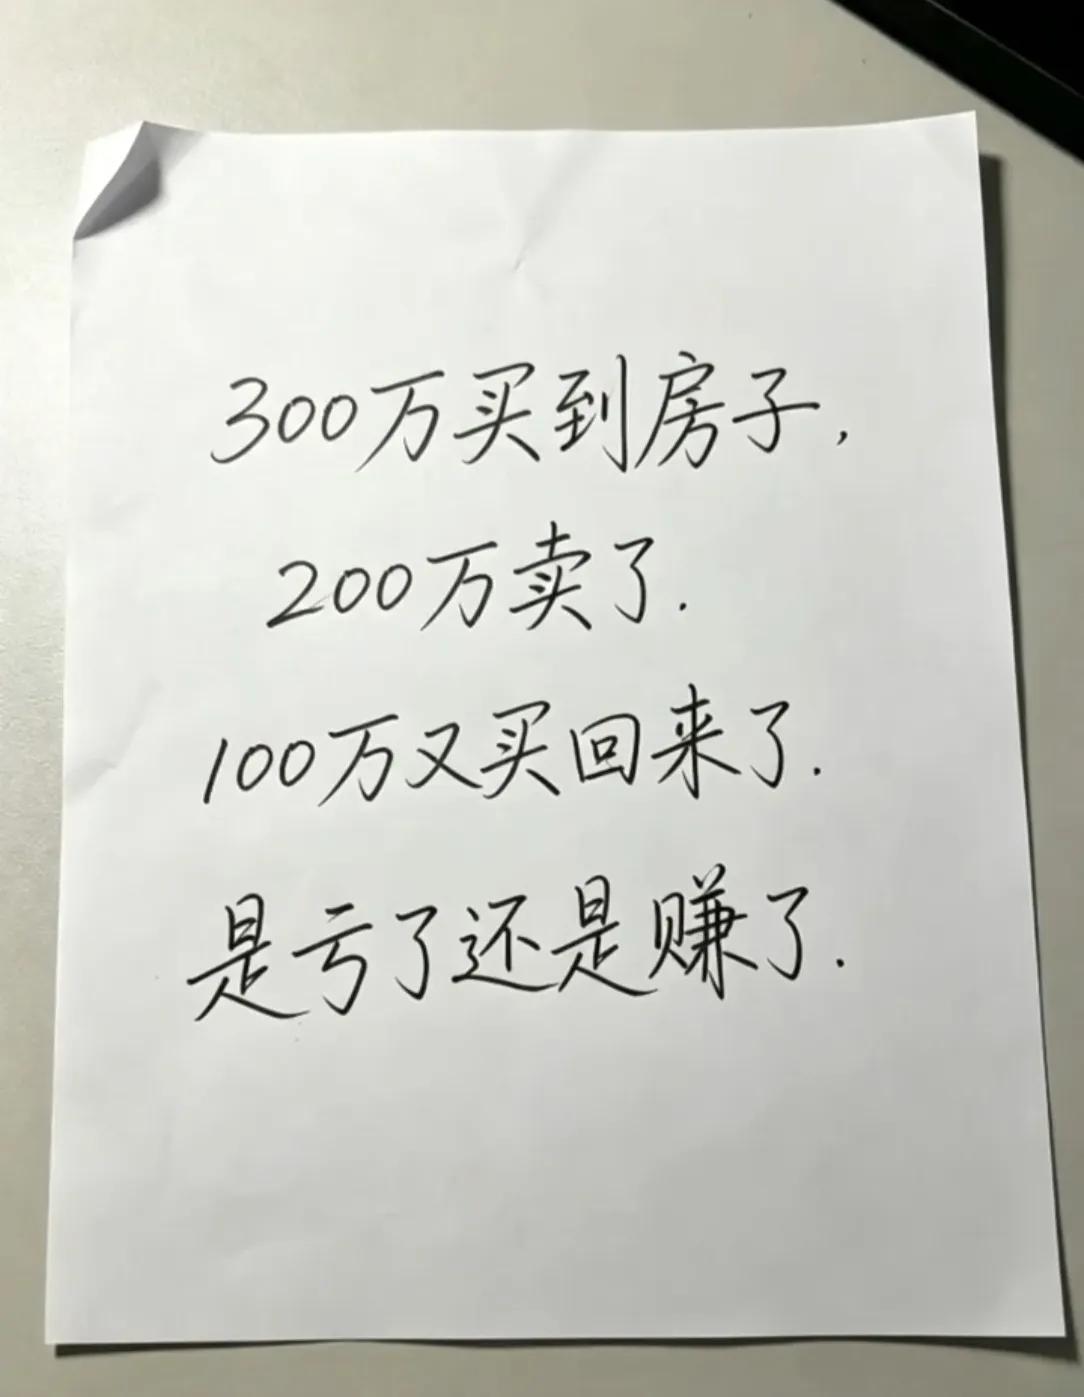 300万买到房子,
200万卖了.
100万又买回来了.
是亏了还是赚了.